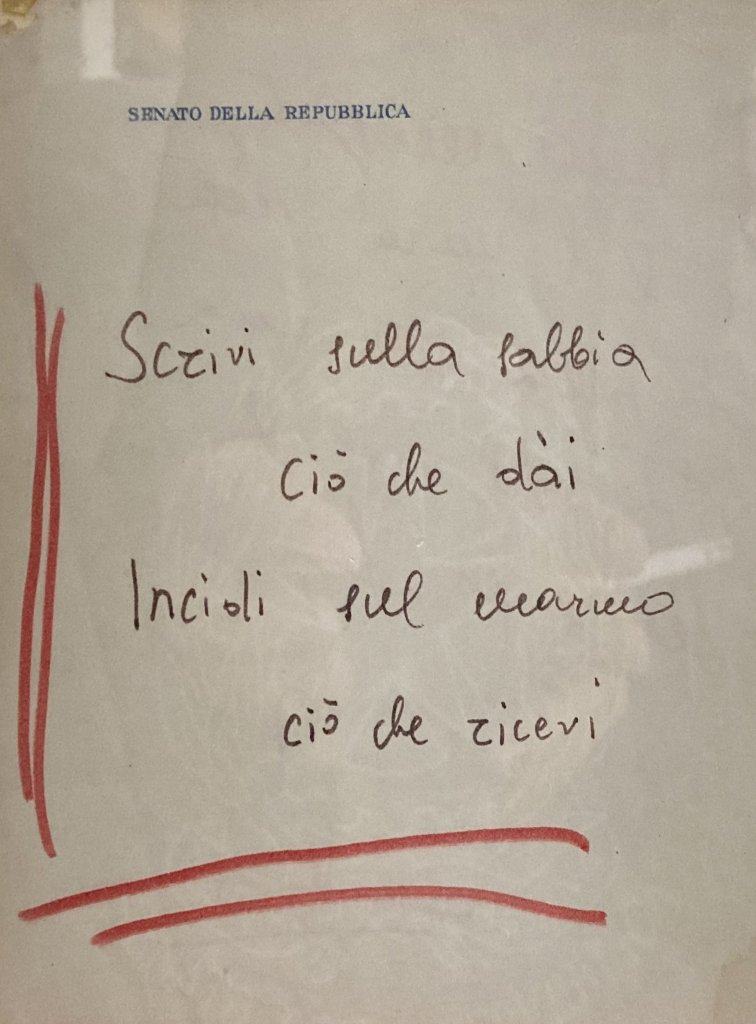 SENATO DELLA REPUBBLICA
Scrivi sulla sabbia
ciò che dài
Incidi sul marmo
ciò che ricevi